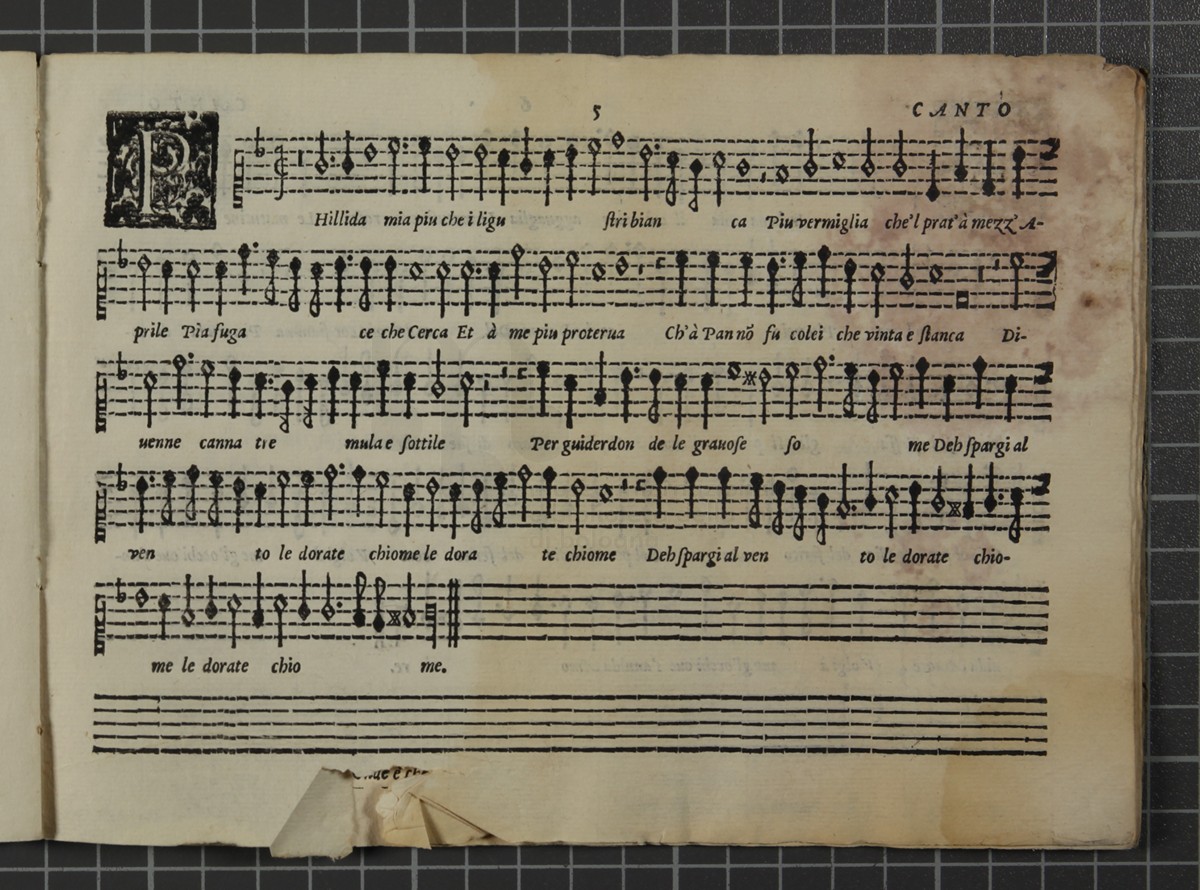 5 CANTO
PHillida mia piu che i ligu stri bian ca Piu vermiglia che'l prat'à mezz' A-
prile Pia fuga ce che Cerca Et à me piu proterua Ch'à Pan nõ fu colei che vinta e stanca Di-
uenne canna tre mula e sottile Per guiderdon de le grauose so me Deh spargi al
ven to le dorate chiome le dora te chiome Deh spargi al ven to le dorate chio-
me le dorate chio me.